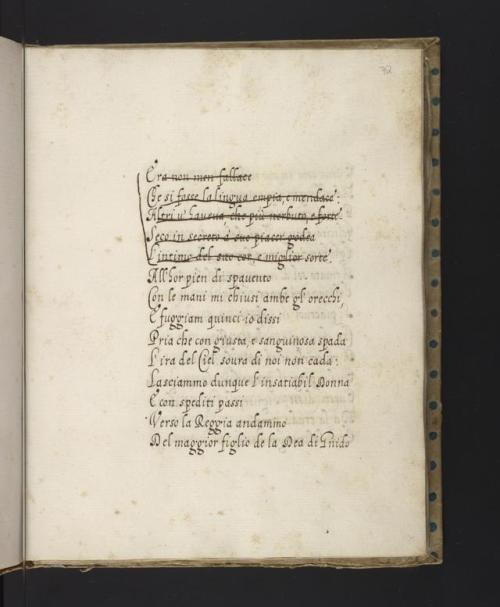 72
Era non men fallace
Che si fosse la lingua empia, e mendace:
Altri v'haveva che più nerbuto, e forte
Seco in secreto à suo piacer godea
L'intimo del suo cor, e miglior sorte.
All'hor pien di spavento
Con le mani mi chiusi ambe gl'orecchi,
E fuggiam quinci io dissi
Pria che con giusta, e sanguinosa spada
L'ira del Ciel sovra di noi non cada:
Lasciammo dunque l'insatiabil Donna
E con spediti passi
Verso la Reggia andammo
Del maggior figlio de la Dea di Gnido